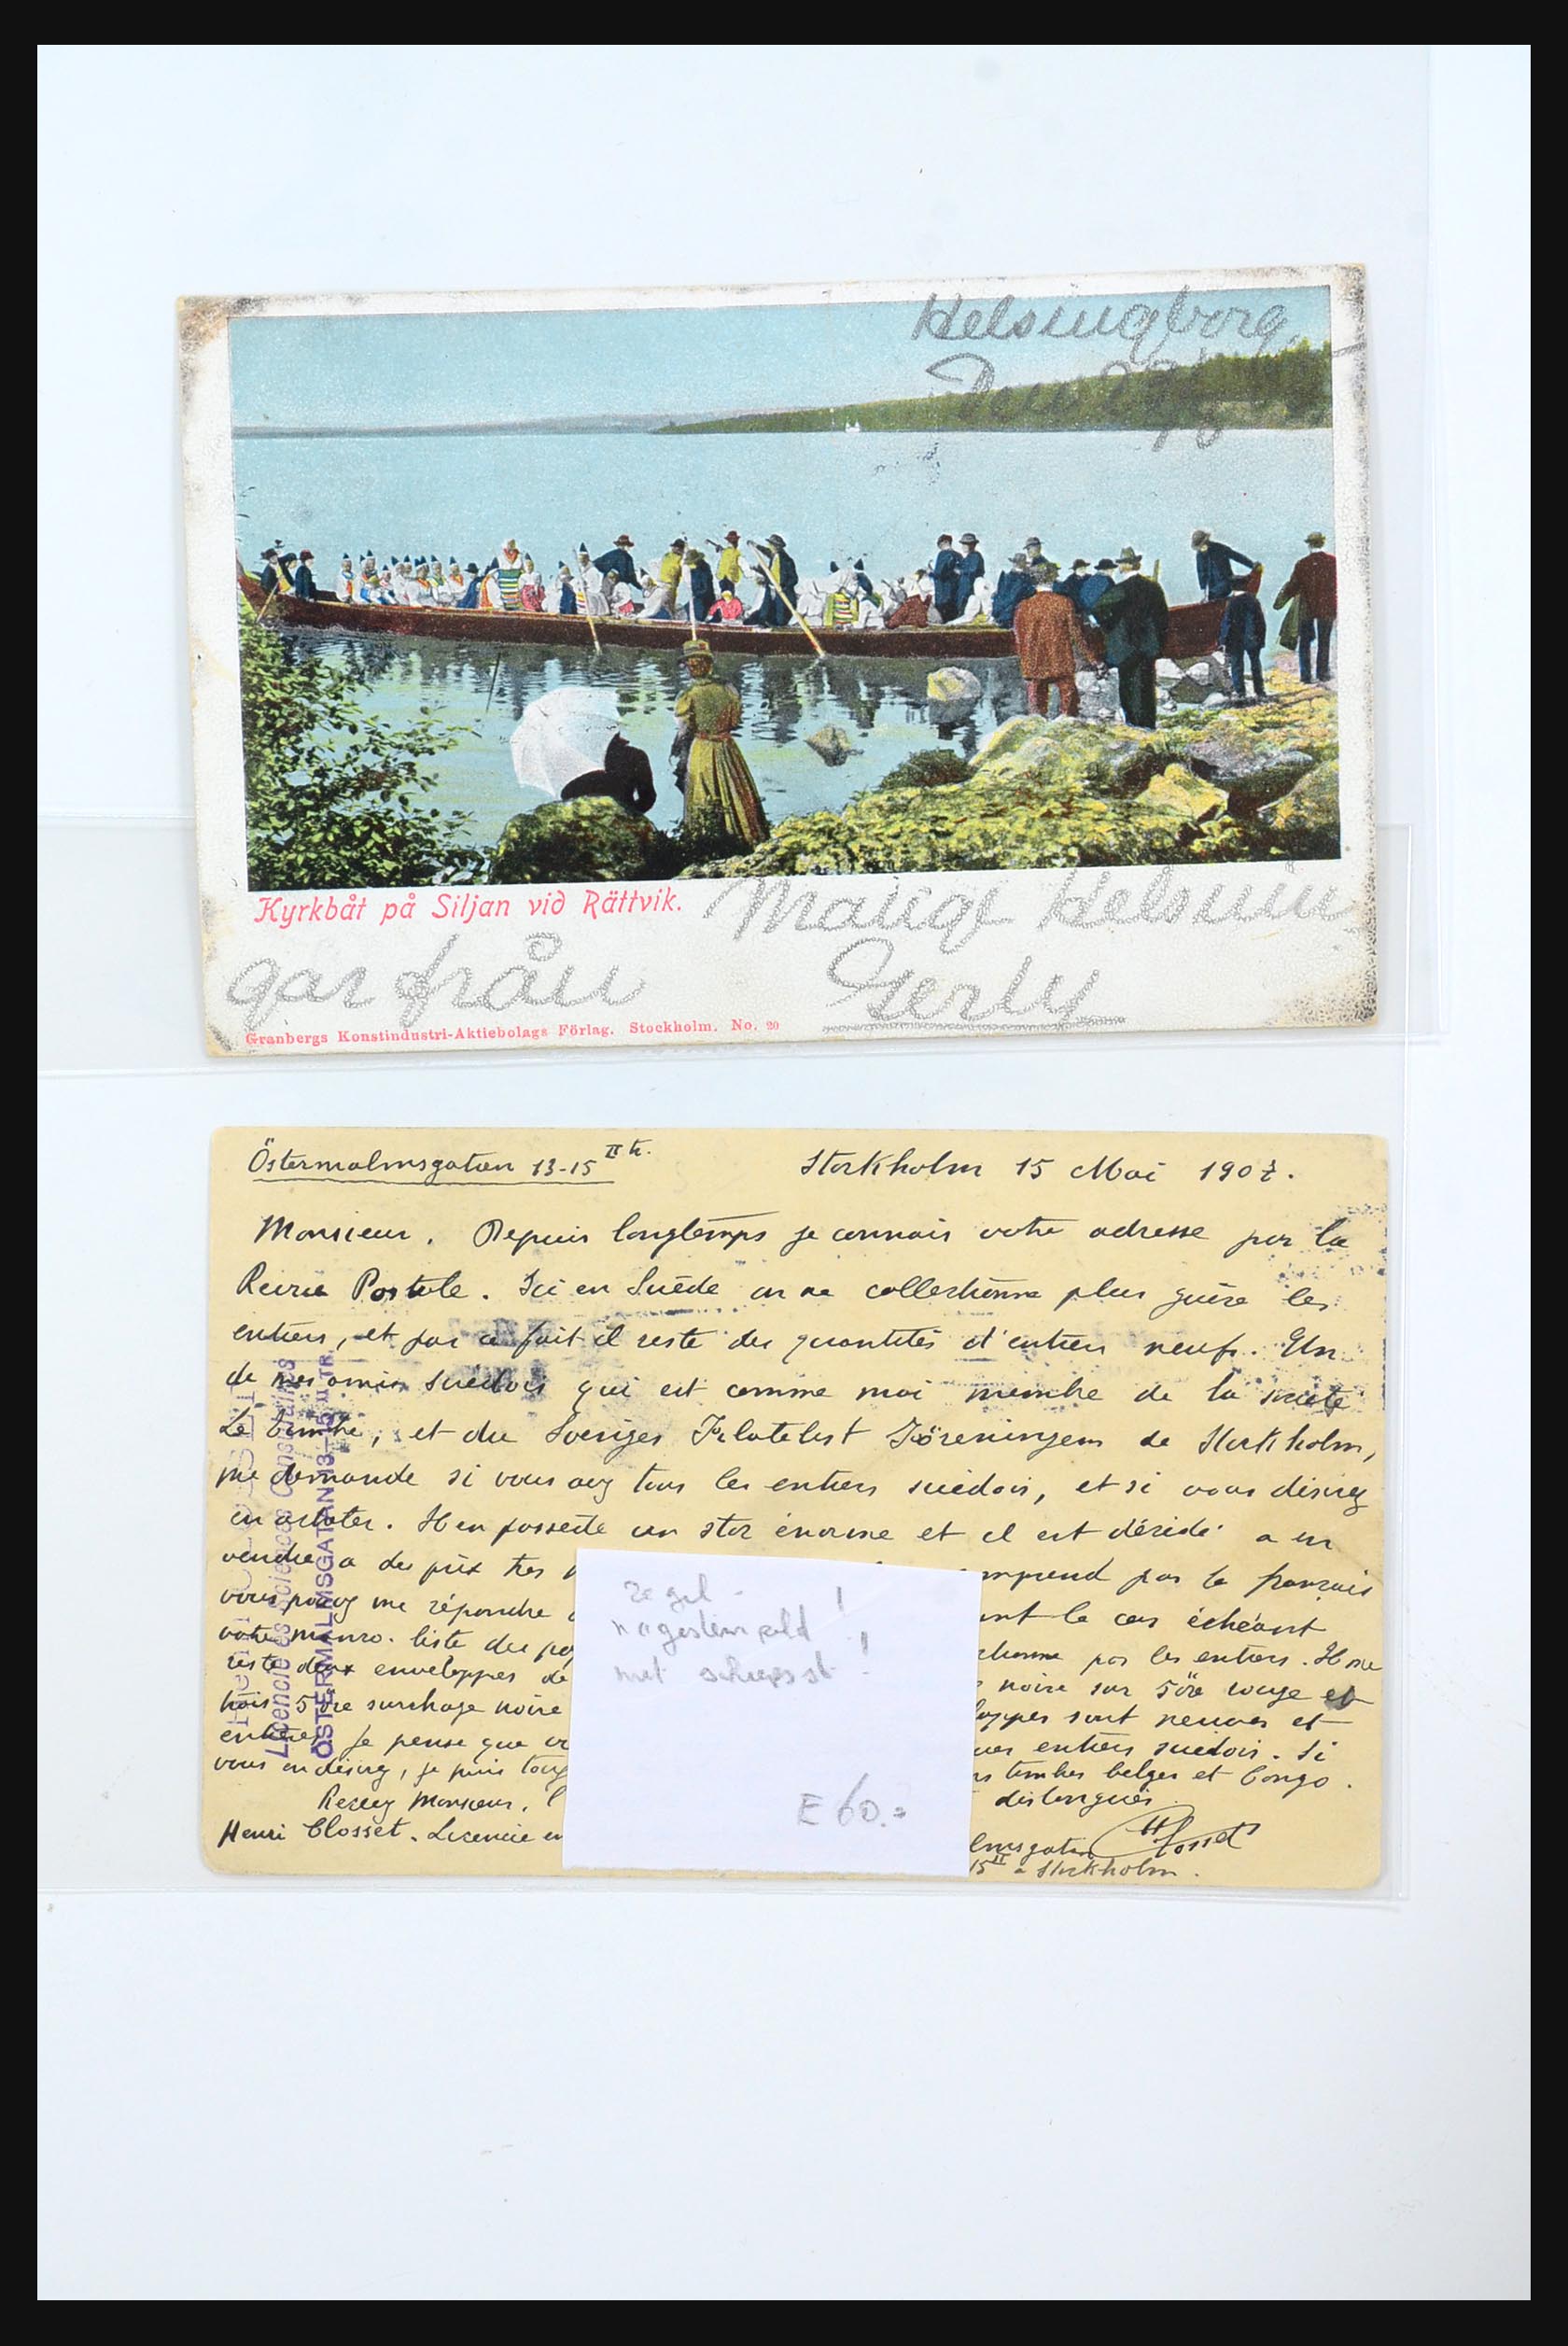 Helsingborg
Den 29/
Kyrkbåt på Siljan vid Rättvik.
Många Helsnin
gar från Gerly
Granbergs Konstindustri-Aktiebolags Förlag. Stockholm. No. 20
Östermalmsgatan 13-15 II tr.
Stockholm 15 Mai 1907.
Monsieur. Depuis longtemps je connais votre adresse par la
Revue Postale. Ici en Suède on ne collectionne plus guère les
entiers, et par ce fait il reste des quantités d'entiers neufs. Un
de mes amis suédois qui est comme moi membre de la société
Le timbre, et du Sveriges Filatelist Föreningen de Stockholm,
me demande si vous avez tous les entiers suédois, et si vous désirez
en acheter. Il en possède un stor énorme et il est décidé a en
vendre a des prix tres
mprend pas le français
vous pouvez me répondre
ant le cas échéant
votre manco. liste des pa
reste deux enveloppes de
ctionne pas les entiers. Il me
trois 5 öre surchage noire
noire sur 5 öre rouge et
entières. Je pense que
loppes sont neuves et
vous en désirez, je puis
ues entiers suédois. Si
rs timbres belges et Congo.
Recevez Monsieur,
distingués.
Henri Closset. Licencié en
lmsgatan
HClosset
15 II a Stockholm.
Licencié ès sciences Consulaires
ÖSTERMALMSGATAN 13-15 II TR.
zegel
nagestempeld !
met schepsst !
E 60.=